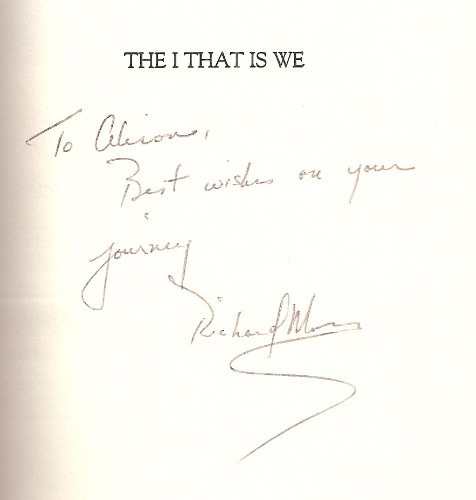 THE I THAT IS WE
To Alison,
Best wishes on your
journey
Richard Moss